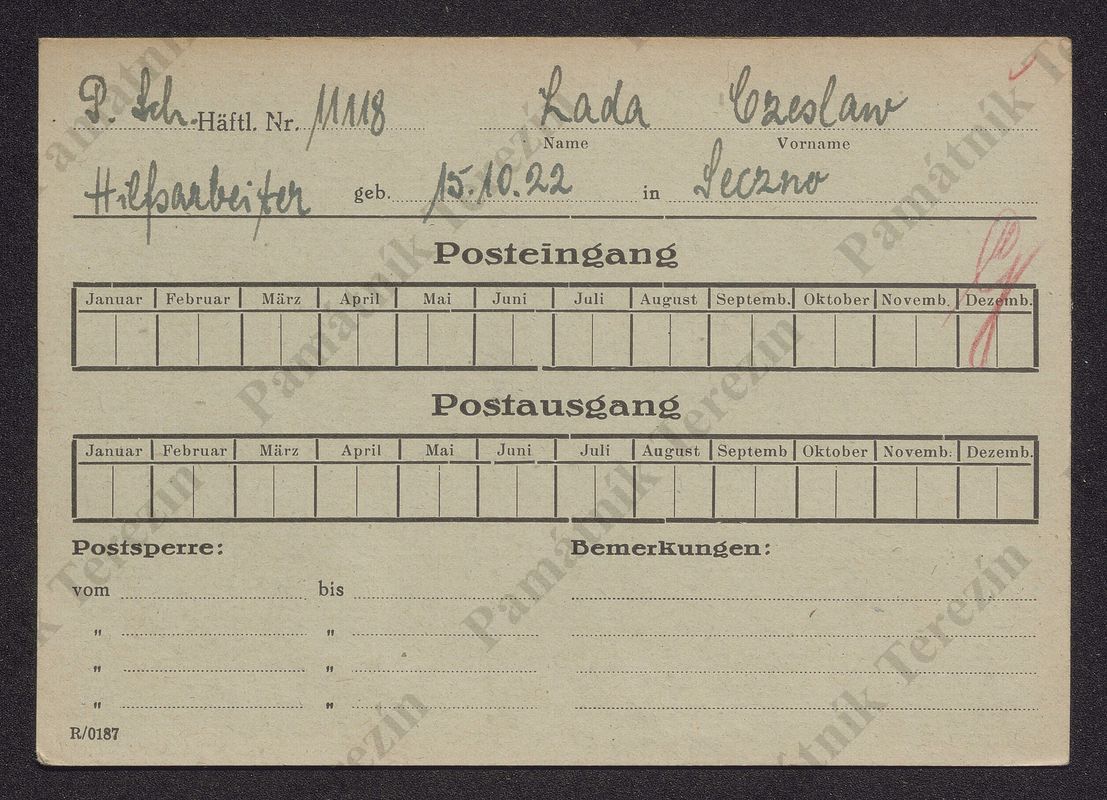 P. Sch. Häftl. Nr. 11118 Lada Czeslaw
Name Vorname
Hilfsarbeiter geb. 15.10.22 in Seczno
Posteingang
Januar Februar März April Mai Juni Juli August Septemb. Oktober Novemb. Dezemb.
Postausgang
Januar Februar März April Mai Juni Juli August Septemb Oktober Novemb. Dezemb.
Postsperre: Bemerkungen:
vom bis
" "
" "
" "
R/0187
Památník Terezín